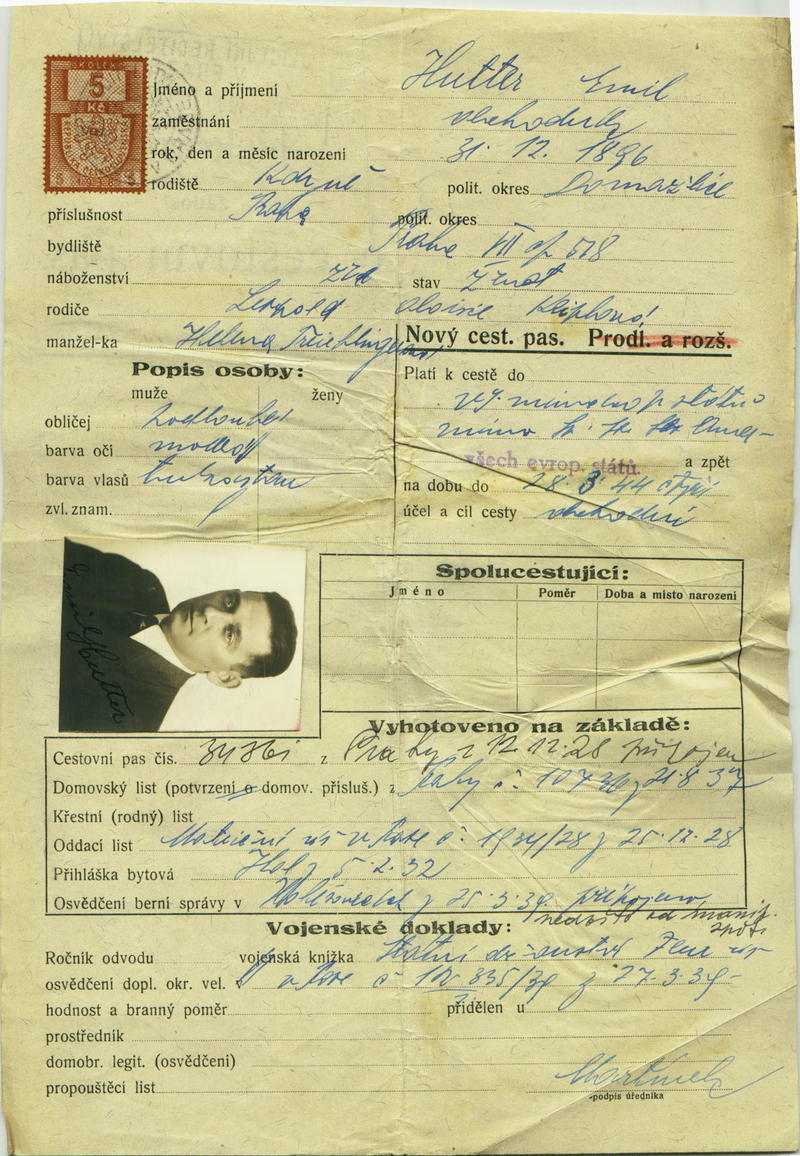 KOLEK
5
Kč
Jméno a příjmení Hutter Emil
zaměstnání obchodník
rok, den a měsíc narození 31. 12. 1896
rodiště Kdyně polit. okres Domažlice
příslušnost Praha polit. okres
bydliště Praha VII čp 518
náboženství žid stav ženat
rodiče Leopold Aloisie
manžel-ka Helena
Nový cest. pas. Prodl. a rozš.
Popis osoby:
muže ženy
Platí k cestě do
obličej podlouhlý
barva očí modré
všech evrop. států. a zpět
barva vlasů
na dobu do 28. 3. 44
zvl. znam.
účel a cíl cesty obchodní
Emil Hutter
Spolucestující:
Jméno Poměr Doba a místo narození
Vyhotoveno na základě:
Cestovní pas čís. z Prahy z 12. 12. 28 připojen
Domovský list (potvrzení o domov. přísluš.) z Prahy č. z 21. 8. 37
Křestní (rodný) list
Oddací list v Praze č. 1934/28 z 25. 12. 28
Přihláška bytová Hol z 5. 2. 32
Osvědčení berní správy v Holešovicích z 25. 3. 39 připojeno
Vojenské doklady:
Ročník odvodu vojenská knížka
osvědčení dopl. okr. vel. v Praze č z 27. 3. 39
hodnost a branný poměr přidělen u
prostředník
domobr. legit. (osvědčení)
propouštěcí list
podpis úředníka